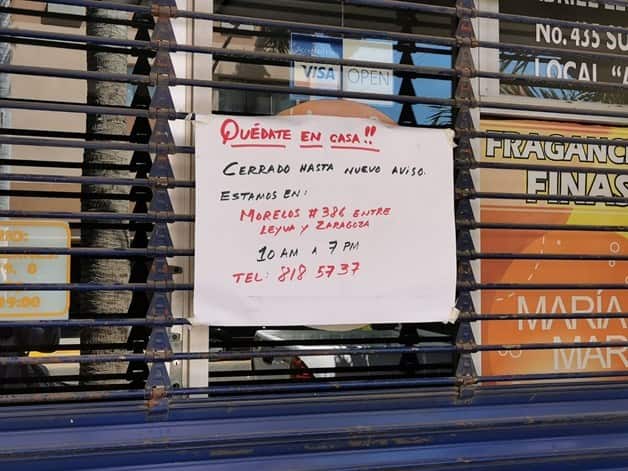 No. 435 SU
LOCAL "A
VISA OPEN
QUÉDATE EN CASA!!
CERRADO HASTA NUEVO AVISO.
ESTAMOS EN:
MORELOS # 386 ENTRE
LEYVA Y ZARAGOZA
10 AM A 7 PM
TEL: 818 5737
FRAGANC
FINAS
MARÍA
MAR
O:
9:00